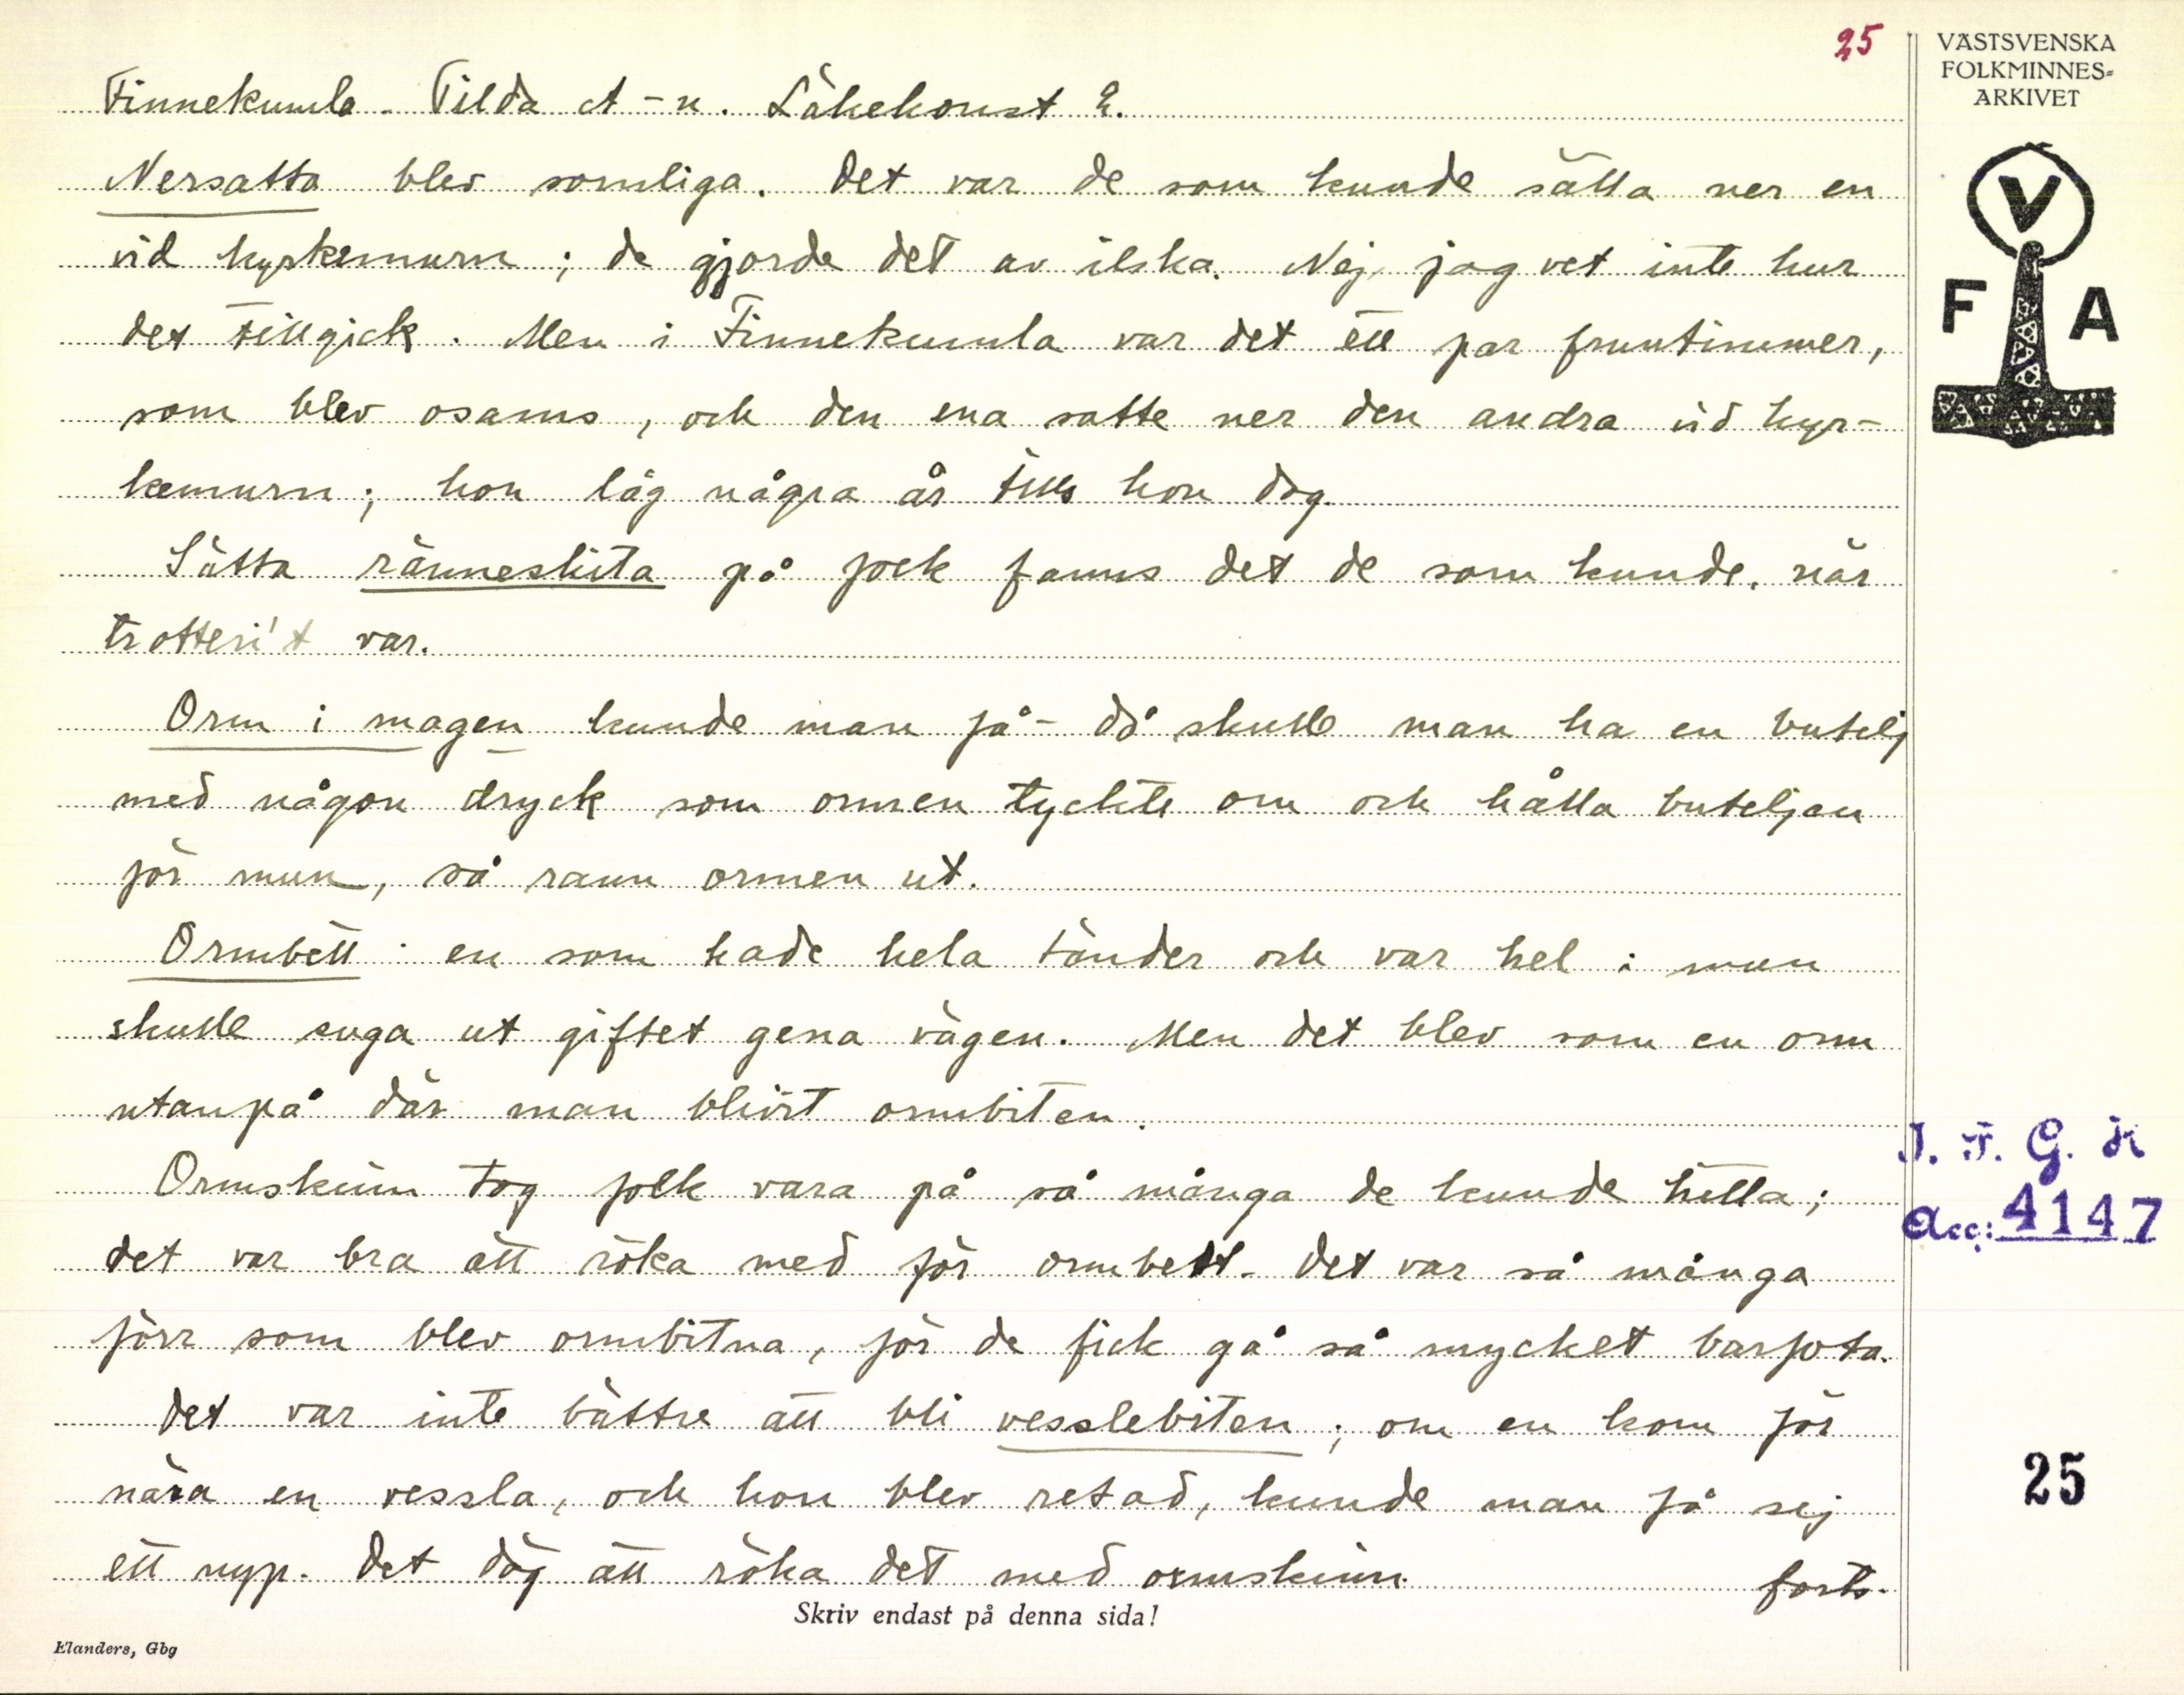 25
VÄSTSVENSKA
FOLKMINNES-
ARKIVET
V
F A
Finnekumla. Tilda A-n. Läkekonst 2.
Nersatta blev somliga. Det var de som kunde sätta ner en
vid kyrkemurn; de gjorde det av ilska. Nej, jag vet inte hur
det tillgick. Men i Finnekumla var det ett par fruntimmer,
som blev osams, och den ena satte ner den andra vid kyr-
kemurn; hon låg några år tills hon dog.
Sätta ränneskita på folk fanns det de som kunde, när
trotteri't var.
Orm i magen kunde man få - då skulle man ha en butelj
med någon dryck som ormen tyckte om och hålla buteljen
för mun, så rann ormen ut.
Ormbett: en som hade hela tänder och var hel i mun
skulle suga ut giftet gena vägen. Men det blev som en orm
utanpå där man blivit ormbiten.
Ormskinn tog folk vara på så många de kunde hitta;
det var bra att röka med för ormbett. Det var så många
förr som blev ormbitna, för de fick gå så mycket barfota.
Det var inte bättre att bli vesslebiten; om en kom för
nära en vessla, och hon blev retad, kunde man få sej
ett nyp. Det dög att röka det med ormskinn.
forts.
I. F. G. H
Acc: 4147
25
Skriv endast på denna sida!
Elanders, Gbg